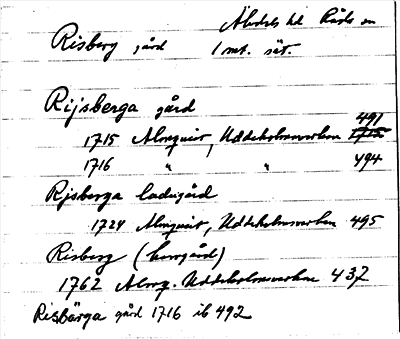 Risberg gård 1 mt. sät.
Rijsberga gård
491
1715 Almquist, Uddeholmsverken 1715
1716 " " 494
Rijsberga ladugård
1724 Almquist, Uddeholmsverken 495
Risberg (herrgård)
1762 Almq. Uddeholmsverken 437
Risbärga gård 1716 ib 492